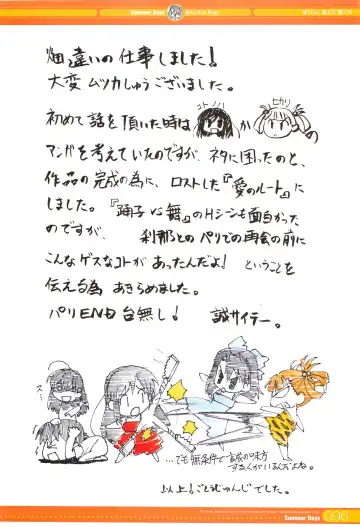 Summer Days
畑違いの仕事しました!
大変ムツカしゅうございました。
コトノハ
ヒカリ
初めて話を頂いた時は か の
マンガを考えていたのですが、ネタに困ったのと、
作品の完成の為に、ロストした『愛のルート』に
しました。『踊子vs舞』のHシーンも面白かった
のですが、 刹那とのパリでの再会の前に
こんなゲスなコトがあったんだよ! ということを
伝える為 あきらめました。
パリEND台無し! 誠サイテー。
…でも無条件で誠の味方
する人がいるんだよね。
以上!ごとうじゅんじでした。
Summer Days 096